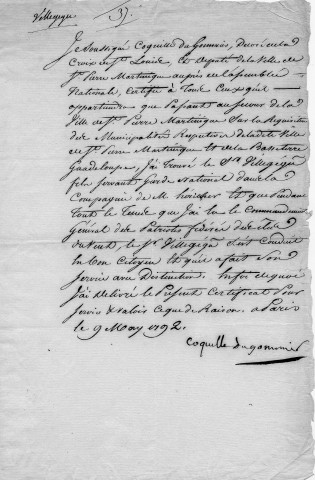 Villegegue 3)
Je Soussigné Coquille Du Gommier, Decoré de la
Croix de St Louis, et Deputé de la Ville de
St Pierre Martinique auprès de l'assemblée
Nationale, Certifie à Tous Ceux qu'il
appartiendra que Passant au secour de la
Ville de St Pierre Martinique Sur la Requisition
des Municipalités Respectives de ladite Ville
de St Pierre Martinique et de la Basseterre
Guadeloupe, j'ai trouvé le Sr Villegegue
fils servant Garde National dans la
Compagnie de M. et que Pendant
tout le Tems que j'ai eu le Commandement
Général des Patriotes fédérés des Isles
du Vent, le Sr Villegegue s'est Conduit
en bon Citoyen et qu'il a fait son
Service avec Distinction. En foi de quoi
J'ai delivré le Présent Certificat Pour
Servir & valoir Ce que de Raison. a Paris
le 9 May 1792.
Coquille dugommier